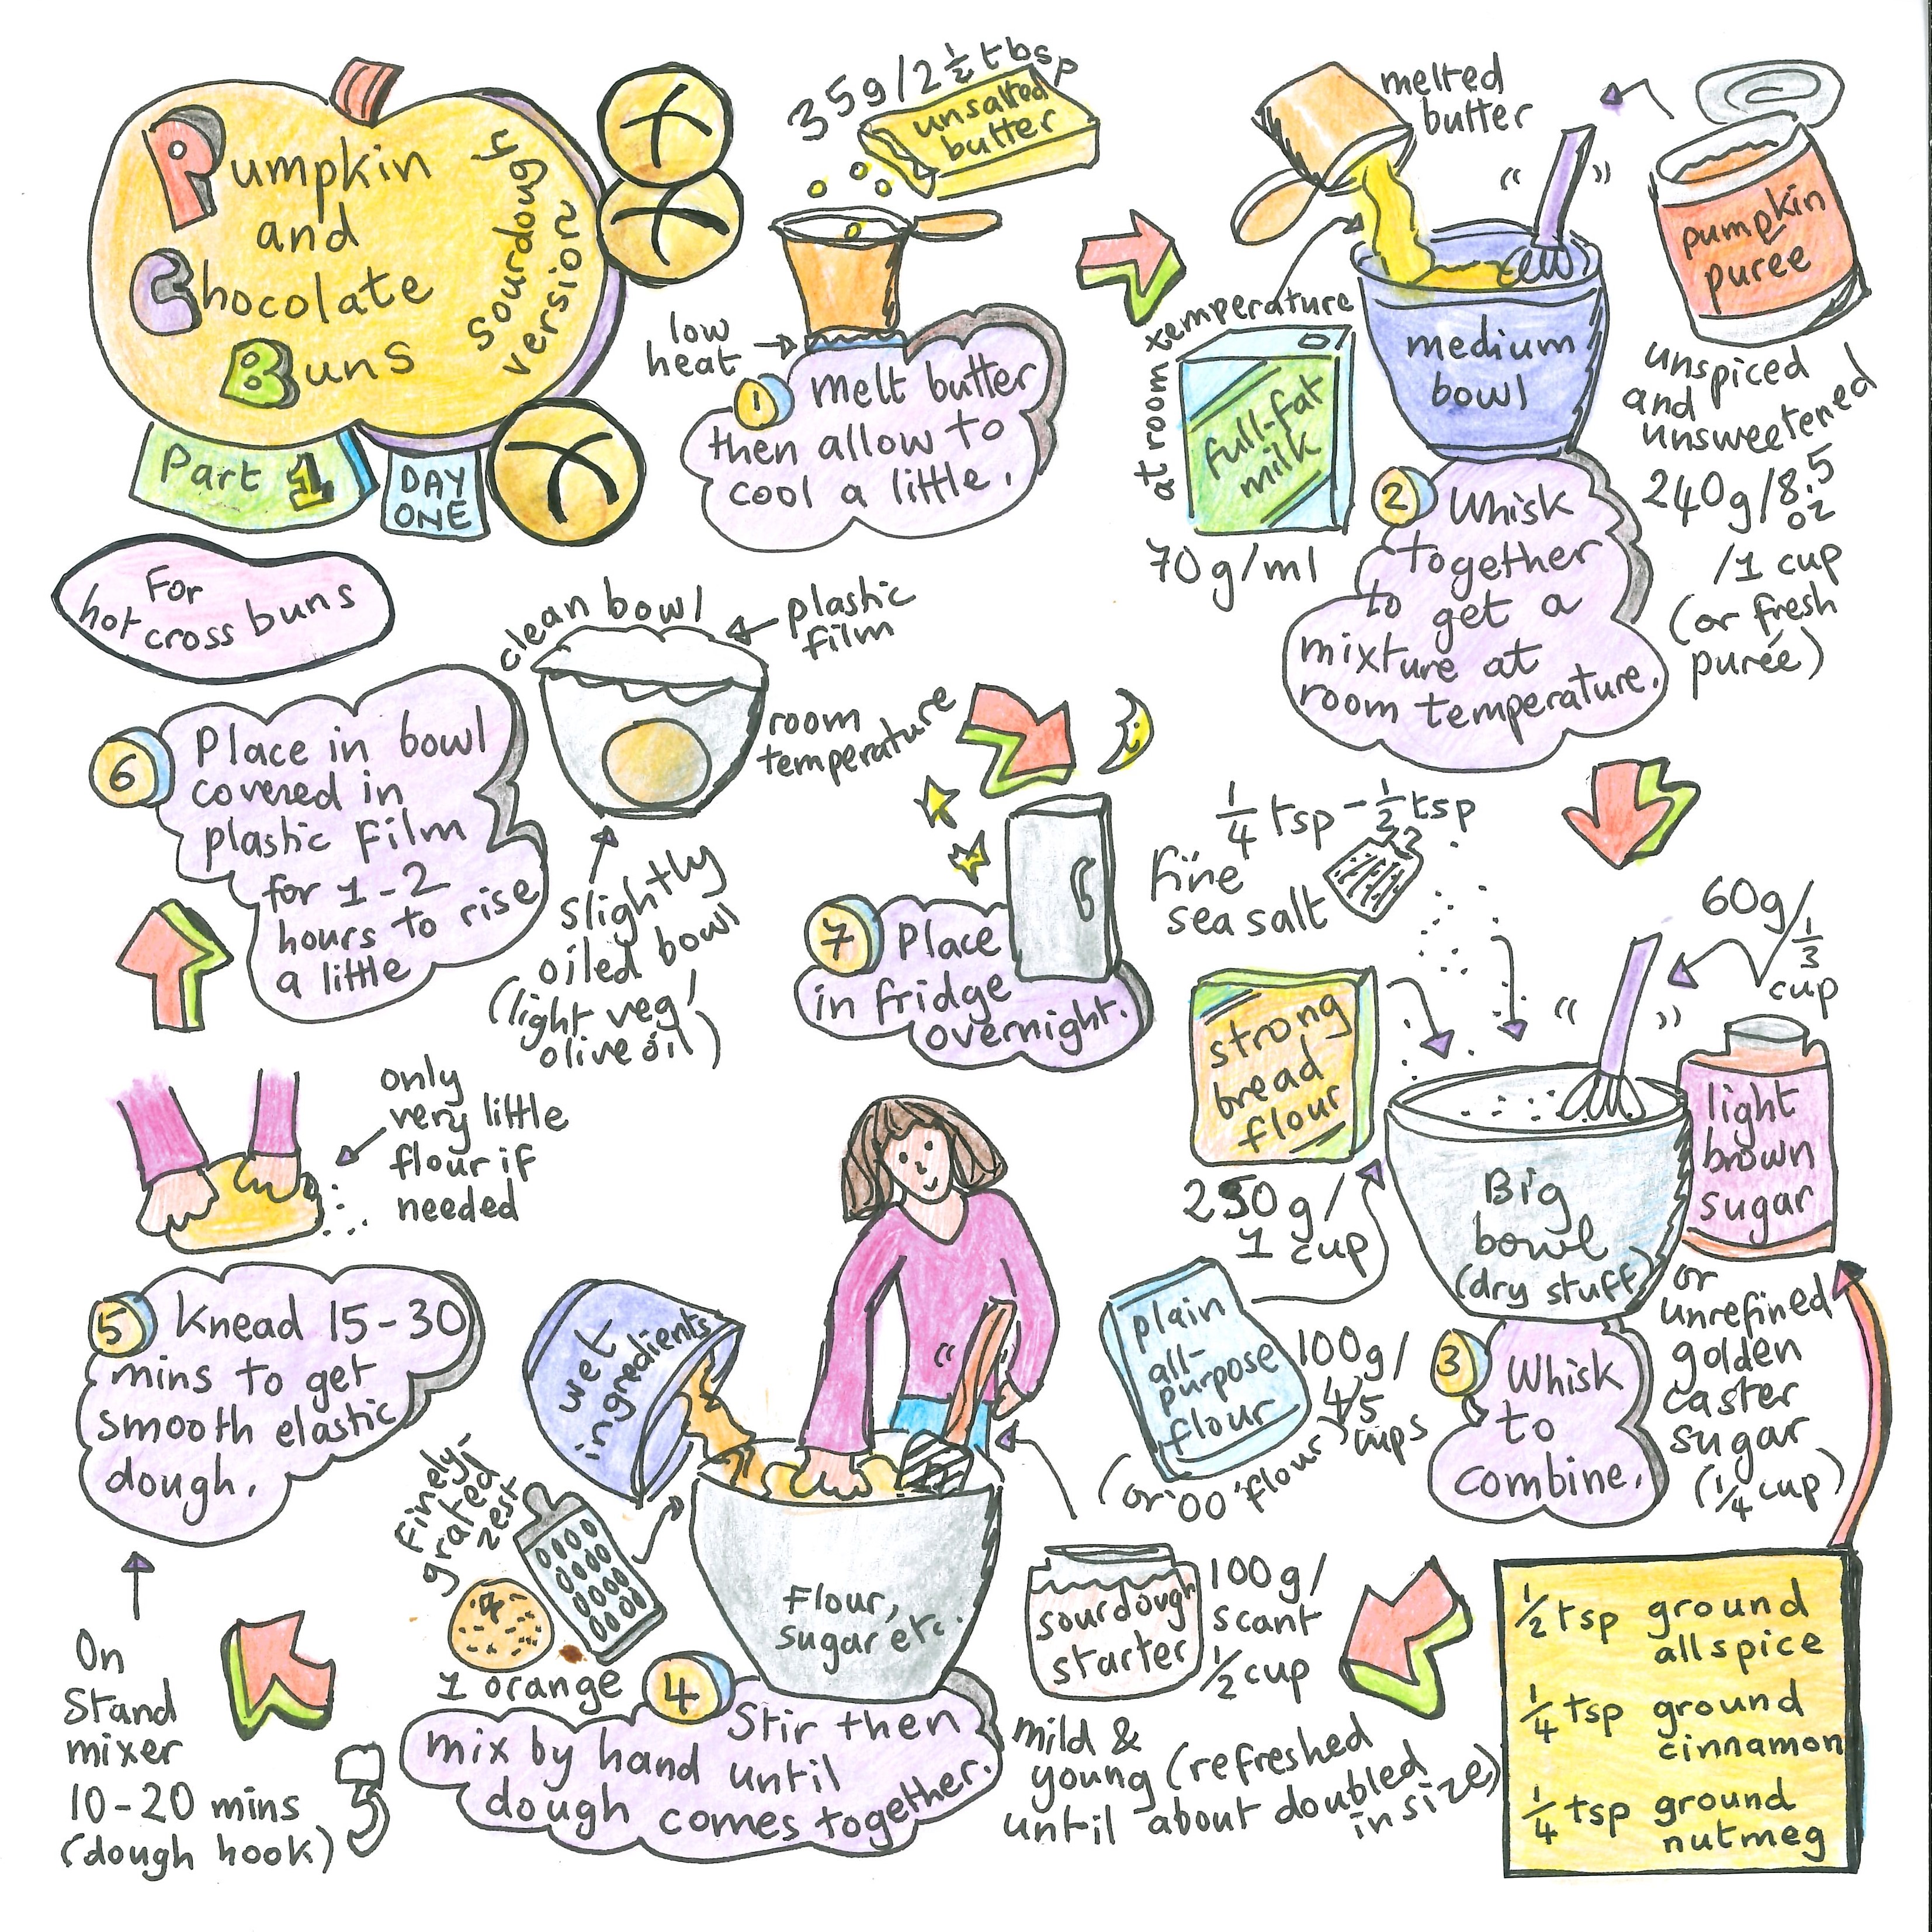 Pumpkin
and
Chocolate
Buns
sourdough
version
Part 1
DAY
ONE
For
hot cross buns
35g/2 ½ tbsp
unsalted
butter
low
heat
1 Melt butter
then allow to
cool a little.
melted
butter
at room temperature
full-fat
milk
70g/ml
medium
bowl
pumpkin
purée
unspiced
and
unsweetened
240g/8.5
oz
/1 cup
(or fresh
purée)
2 Whisk
together
to get a
mixture at
room temperature.
¼ tsp - ½ tsp
fine
sea salt
strong
bread
flour
250g/
1 cup
plain
all-
purpose
flour
100g/
4/5
cups
(or '00' flour)
Big
bowl
(dry stuff)
60g/
⅓
cup
light
brown
sugar
or
unrefined
golden
caster
sugar
(¼ cup)
3 Whisk
to
combine.
½ tsp ground
allspice
¼ tsp ground
cinnamon
¼ tsp ground
nutmeg
wet
ingredients
finely-
grated
zest
1 orange
Flour,
sugar etc.
sourdough
starter
100g/
scant
½ cup
mild &
young (refreshed
until about doubled
in size)
4 Stir then
mix by hand until
dough comes together.
only
very little
flour if
needed
5 Knead 15-30
mins to get
smooth elastic
dough.
On
Stand
mixer
10-20 mins
(dough hook)
6 Place in bowl
covered in
plastic film
for 1-2
hours to rise
a little
clean bowl
plastic
film
room
temperature
slightly
oiled bowl
(light veg/
olive oil)
7 Place
in fridge
overnight.